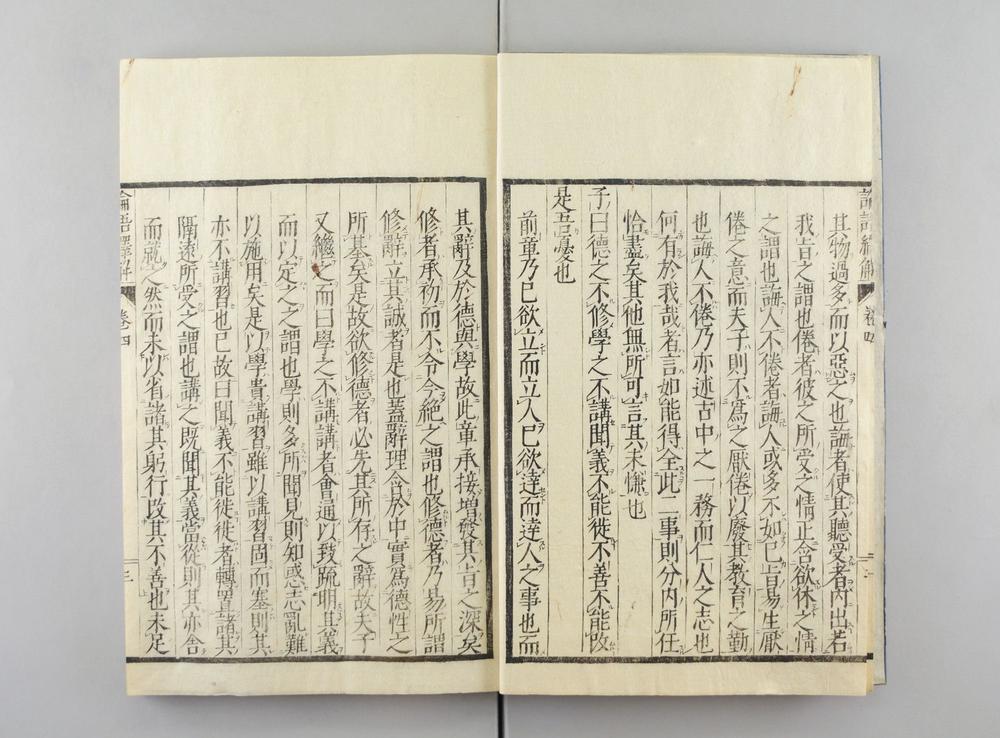 其物過多而以惡之也誨者使其聽受者內出若
我旨之謂也倦者彼之所受之情正含欲休之情
之謂也誨人不倦者誨人或多不如已旨易生厭
倦之意而夫子則不爲之厭倦以廢其教育之勤
也誨人不倦乃亦述古中之一務而仁人之志也
何有於我哉者言如能得全此一事則分內所任
恰盡矣其他無所可言其未慊也
子曰德之不修學之不講聞義不能徙不善不能改
是吾憂也
前章乃已欲立而立人已欲達而達人之事也而
其辭及於德與學故此章承接增發其旨之深矣
修者承物而不令今絕之謂也修德者乃易所謂
修辭立其誠者是也蓋辭理含於中實爲德性之
所基矣是故欲修德者必先其所存之辭故夫子
又繼之而曰學之不講講者會通以致疏明其義
而以定之之謂也學則多所聞見則知惑志亂難
以施用矣是以學貴講習雖以講習固而塞則其
亦不講習也已故曰聞義不能徙徙者轉置諸其
隔遠所受之謂也講之既聞其義當從則其亦舍
而藏之然而未以省諸其躬行改其不善也未足
論語繹解 卷四 三